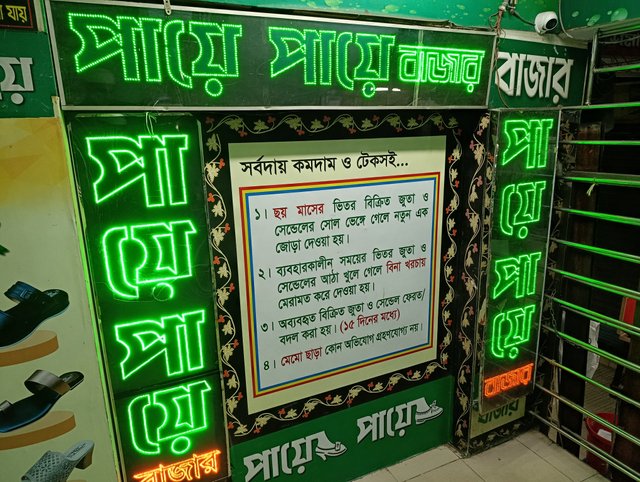 পায়ে পায়ে বাজার
বাজার
পা
য়ে
পা
য়ে
বাজার
সর্বদায় কমদাম ও টেকসই...
১। ছয় মাসের ভিতর বিক্রিত জুতা ও
সেন্ডেলের সোল ভেঙ্গে গেলে নতুন এক
জোড়া দেওয়া হয়।
২। ব্যবহারকালীন সময়ের ভিতর জুতা ও
সেন্ডেলের আঠা খুলে গেলে বিনা খরচায়
মেরামত করে দেওয়া হয়।
৩। অব্যবহৃত বিক্রিত জুতা ও সেন্ডেল ফেরত/
বদল করা হয়। (১৫ দিনের মধ্যে)
৪। মেমো ছাড়া কোন অভিযোগ গ্রহণযোগ্য নয়।
পা
য়ে
পা
য়ে
বাজার
বাজার
পায়ে পায়ে